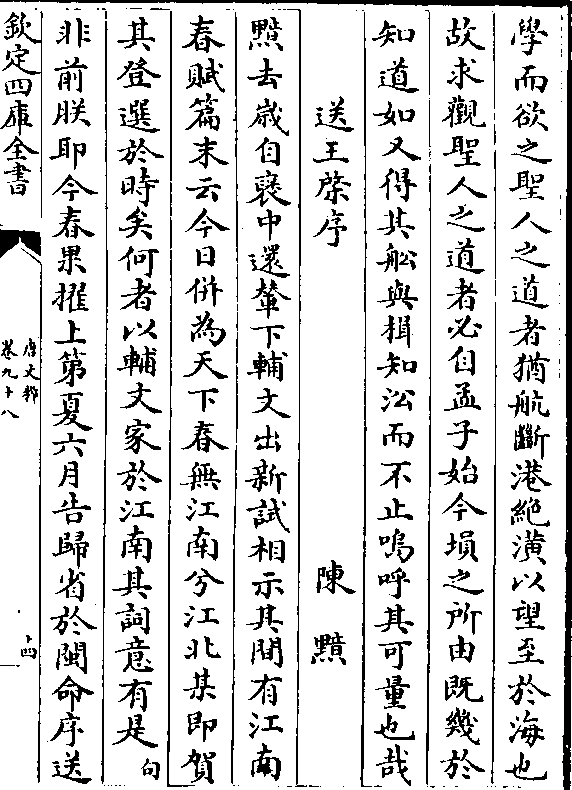 學而欲之聖人之道者猶航斷港絶潢以望至於海也
故求觀聖人之道者必自孟子始今塤之所由既幾於
知道如又得其舩與楫知㳂而不止嗚呼其可量也哉
送王棨序　陳黯
黯去歲自褎中還輦下輔文出新試相示其間有江南
春賦篇末云今日併為天下春無江南兮江北某即賀
其登選於時矣何者以輔文家於江南其詞意有是句
非前朕耶今春果擢上第夏六月告歸省於閩命序送
欽定四庫全書
唐文粹
卷九十八
十四